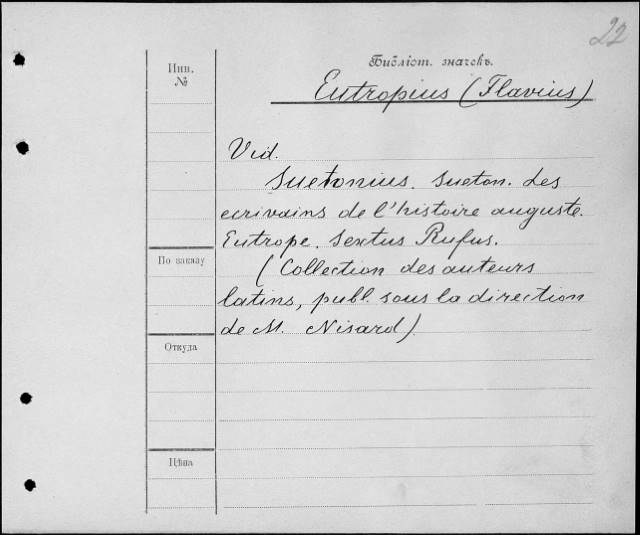 22
Библіот. значекъ.
Инв.
№
Eutropius (Flavius)
Vid.
Suetonius. Sueton. Les
ecrivains de l'histoire auguste.
Eutrope. Sextus Rufus.
(Collection des auteurs
latins, publ. sous la direction
de M. Nisard).
По заказу
Откуда
Цѣна